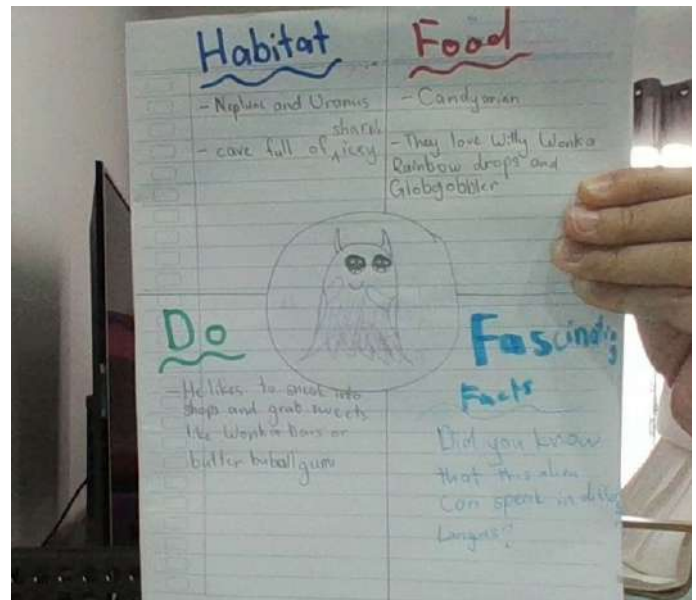 Habitat
- Neptune and Uranus
sharp
- cave full of icey
Food
- Candyarian
- They love Willy Wonka
Rainbow drops and
Globgobbler
Do
- He likes to sneak into
shops and grab sweets
like Wonka bars or
butter buball gum
Fascinating
Facts
Did you know
that this alien
Can speak in